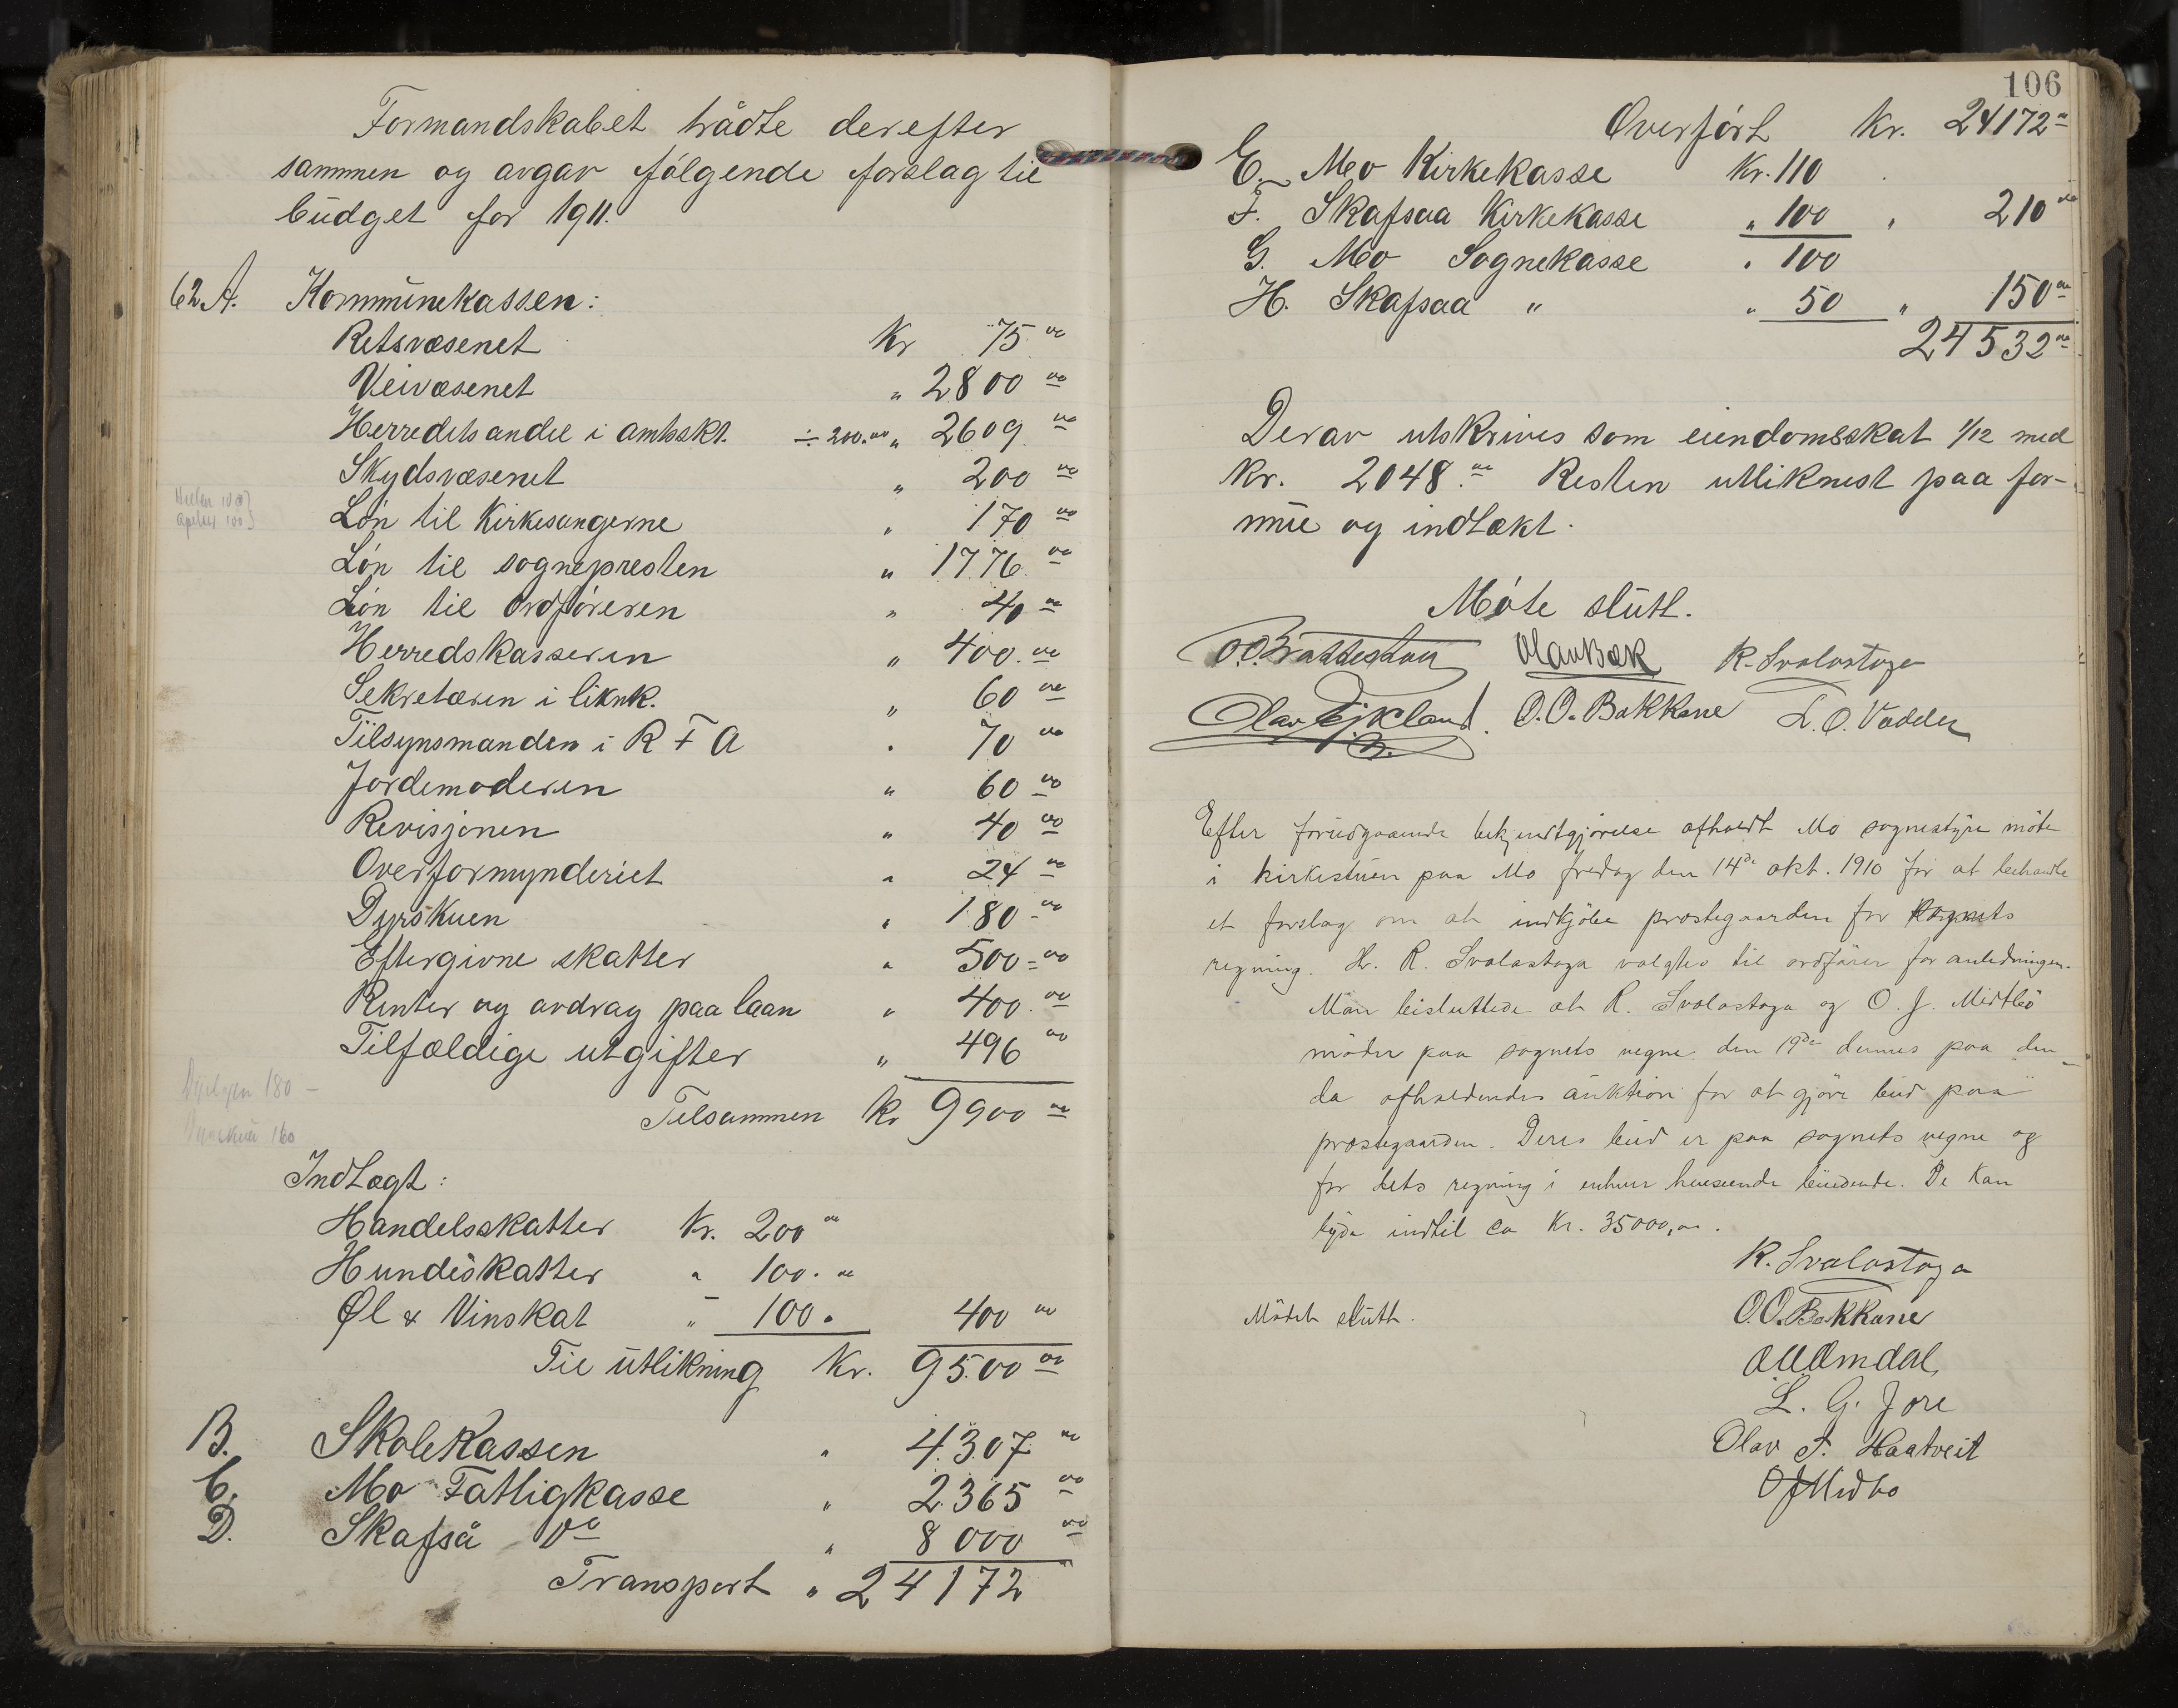 Formandskabet trådte derefter
sammen og avgav følgende forslag til
budget for 1911.
62 A. Kommunekassen:
Retsvæsenet Kr 75.00
Veivæsenet " 2800 00
Herredets andel i amtsskt. ÷ 200.00 " 2609 00
Skydsvæsenet " 200 00
Løn til Kirkesangerne " 170 00
Løn til sognepresten " 1776 00
Løn til Ordføreren " 40 00
Herredskasseren " 400.00
Sekretæren i liknk. " 60 00
Tilsynsmanden i R F A " 70 00
Jordemoderen " 60 00
Revisjonen " 40 00
Overformynderiet " 24 00
Dyrskuen " 180 00
Eftergivne skatter " 500 = 00
Renter og avdrag paa laan " 400.00
Tilfældige utgifter " 496 00
180 –
Tilsammen Kr 9900 00
160
Indtægt:
Handelsskatter Kr. 200 00
Hundeskatter " 100. 00
Øl & Vinskat " 100. 400 00
Til utlikning Kr. 9500 00
B. Skolekassen " 4307 00
C. Mo Fattigkasse " 2365 00
D. Skafså Do " 8000 00
Transport " 24172
106
Overført Kr. 24172 00
E. Mo Kirkekasse Kr. 110
F. Skafsaa Kirkekasse " 100 " 210 00
G. Mo Sognekasse " 100
H. Skafsaa " " 50 " 150 00
24532 00
Derav utskrives som eiendomsskat 1/12 med
Kr. 2048.00 Resten utliknest paa for-
mue og indtækt.
Møte slutt.
O.O. Brattestaa Olav Bæk R. Svalastoga
Olav Eikland. O.O. Bakkane L.O. Vadder
Efter forudgaaende bekjendtgjørelse afholdt Mo sognestyre møte
i kirkestuen paa Mo fredag den 14de okt. 1910 for at behandle
et forslag om at indkjøbe prestegaarden for sognets
regning. Hr. R. Svalastoga valgtes til ordfører for anledningen.
Man besluttede at R. Svalastoga og O. J. Midtbö
möder paa sognets vegne den 19de dennes paa den
da afholdendes auktion for at gjöre bud paa
prestegaarden. Deres bud er paa sognets vegne og
for dets regning i enhver henseende bindende. De kan
byde indtil ca Kr. 35000,00.
R. Svalastoga
Mödet slutt. O.O. Bakkane
Omdal
L. G. Jore
Olav T. Haatveit
O J Midbo